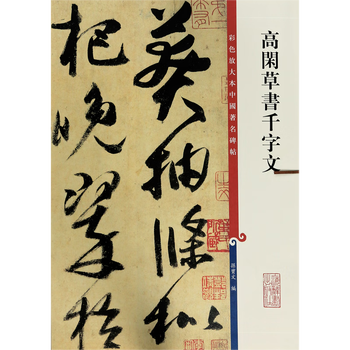 高閑草書千字文
彩色放大本中國著名碑帖
孫寶文 編
莽抽條枇
杷晚翠梧